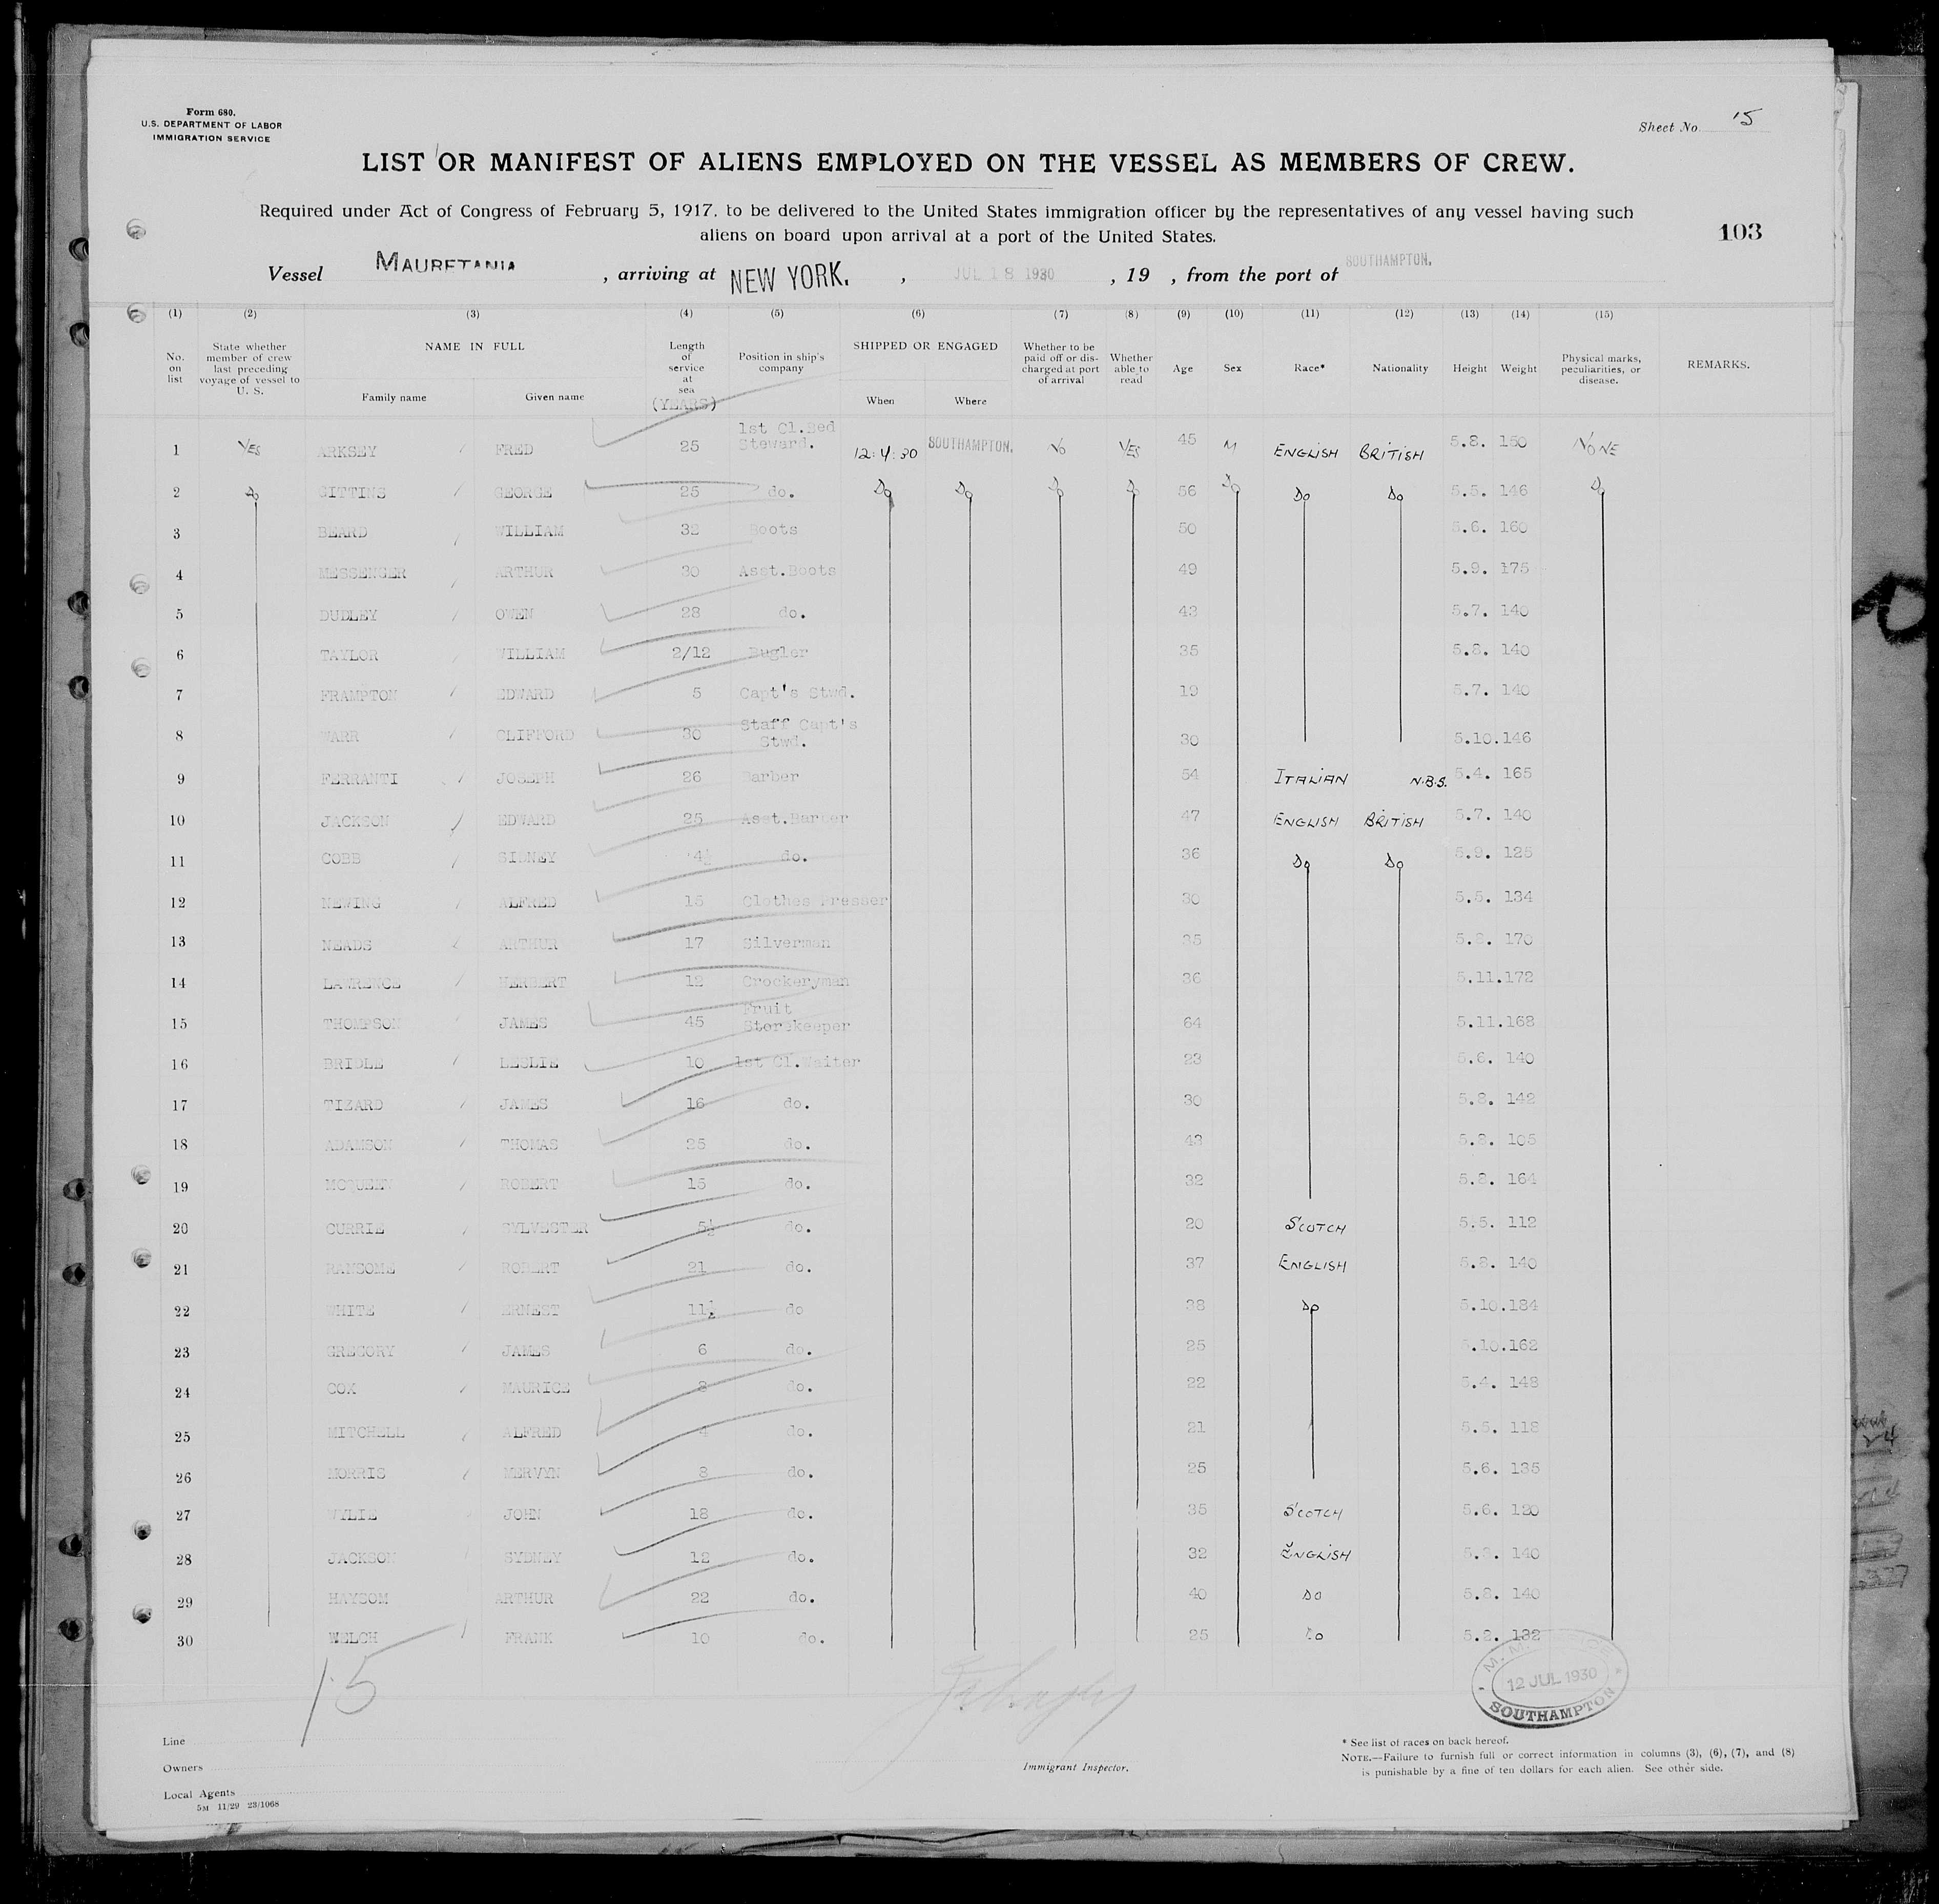 Form 680.
U.S. DEPARTMENT OF LABOR
IMMIGRATION SERVICE
Sheet No. 15
LIST OR MANIFEST OF ALIENS EMPLOYED ON THE VESSEL AS MEMBERS OF CREW.
Required under Act of Congress of February 5, 1917, to be delivered to the United States immigration officer by the representatives of any vessel having such
aliens on board upon arrival at a port of the United States.
103
Vessel MAURETANIA , arriving at NEW YORK. , JUL 18 1930 , 19 , from the port of SOUTHAMPTON.
(1) (2) (3) (4) (5) (6) (7) (8) (9) (10) (11) (12) (13) (14) (15)
No. on list State whether member of crew last preceding voyage of vessel to U. S. NAME IN FULL Family name Given name Length of service at sea (YEARS) Position in ship's company SHIPPED OR ENGAGED When Where Whether to be paid off or discharged at port of arrival Whether able to read Age Sex Race* Nationality Height Weight Physical marks, peculiarities, or disease. REMARKS.
1 YES ARKSEY FRED 25 1st Cl.Bed Steward. 12.4.30 SOUTHAMPTON. NO YES 45 M ENGLISH BRITISH 5.8. 150 NONE
2 Do GITTINS GEORGE 25 do. Do Do Do Do 56 Do Do Do 5.5. 146 Do
3 BEARD WILLIAM 32 Boots 50 5.6. 160
4 MESSENGER ARTHUR 30 Asst.Boots 49 5.9. 175
5 DUDLEY OWEN 28 do. 43 5.7. 140
6 TAYLOR WILLIAM 2/12 Bugler 35 5.8. 140
7 FRAMPTON EDWARD 5 Capt's Stwd. 19 5.7. 140
8 WARR CLIFFORD 30 Staff Capt's Stwd. 30 5.10. 146
9 FERRANTI JOSEPH 26 Barber 54 ITALIAN N.B.S. 5.4. 165
10 JACKSON EDWARD 25 Asst.Barber 47 ENGLISH BRITISH 5.7. 140
11 COBB SIDNEY 4½ do. 36 Do Do 5.9. 125
12 NEWING ALFRED 15 Clothes Presser 30 5.5. 134
13 NEADS ARTHUR 17 Silverman 35 5.8. 170
14 LAWRENCE HERBERT 12 Crockeryman 36 5.11. 172
15 THOMPSON JAMES 45 Fruit Storekeeper 64 5.11. 168
16 BRIDLE LESLIE 10 1st Cl.Waiter 23 5.6. 140
17 TIZARD JAMES 16 do. 30 5.8. 142
18 ADAMSON THOMAS 25 do. 43 5.8. 105
19 MCQUEEN ROBERT 15 do. 32 5.8. 164
20 CURRIE SYLVESTER 5½ do. 20 SCOTCH 5.5. 112
21 RANSOME ROBERT 21 do. 37 ENGLISH 5.8. 140
22 WHITE ERNEST 11½ do 38 Do 5.10. 184
23 GREGORY JAMES 6 do. 25 5.10. 162
24 COX MAURICE 8 do. 22 5.4. 148
25 MITCHELL ALFRED 4 do. 21 5.5. 118
26 MORRIS MERVYN 8 do. 25 5.6. 135
27 WYLIE JOHN 18 do. 35 SCOTCH 5.6. 120
28 JACKSON SYDNEY 12 do. 32 ENGLISH 140
29 HAYSOM ARTHUR 22 do. 40 DO 5.8. 140
30 WELCH FRANK 10 do. 25 Do 5.2. 132
15
12 JUL 1930
SOUTHAMPTON
Line
Owners
Local Agents
5M 11/29 23/1068
Immigrant Inspector.
* See list of races on back hereof.
NOTE.—Failure to furnish full or correct information in columns (3), (6), (7), and (8)
is punishable by a fine of ten dollars for each alien. See other side.